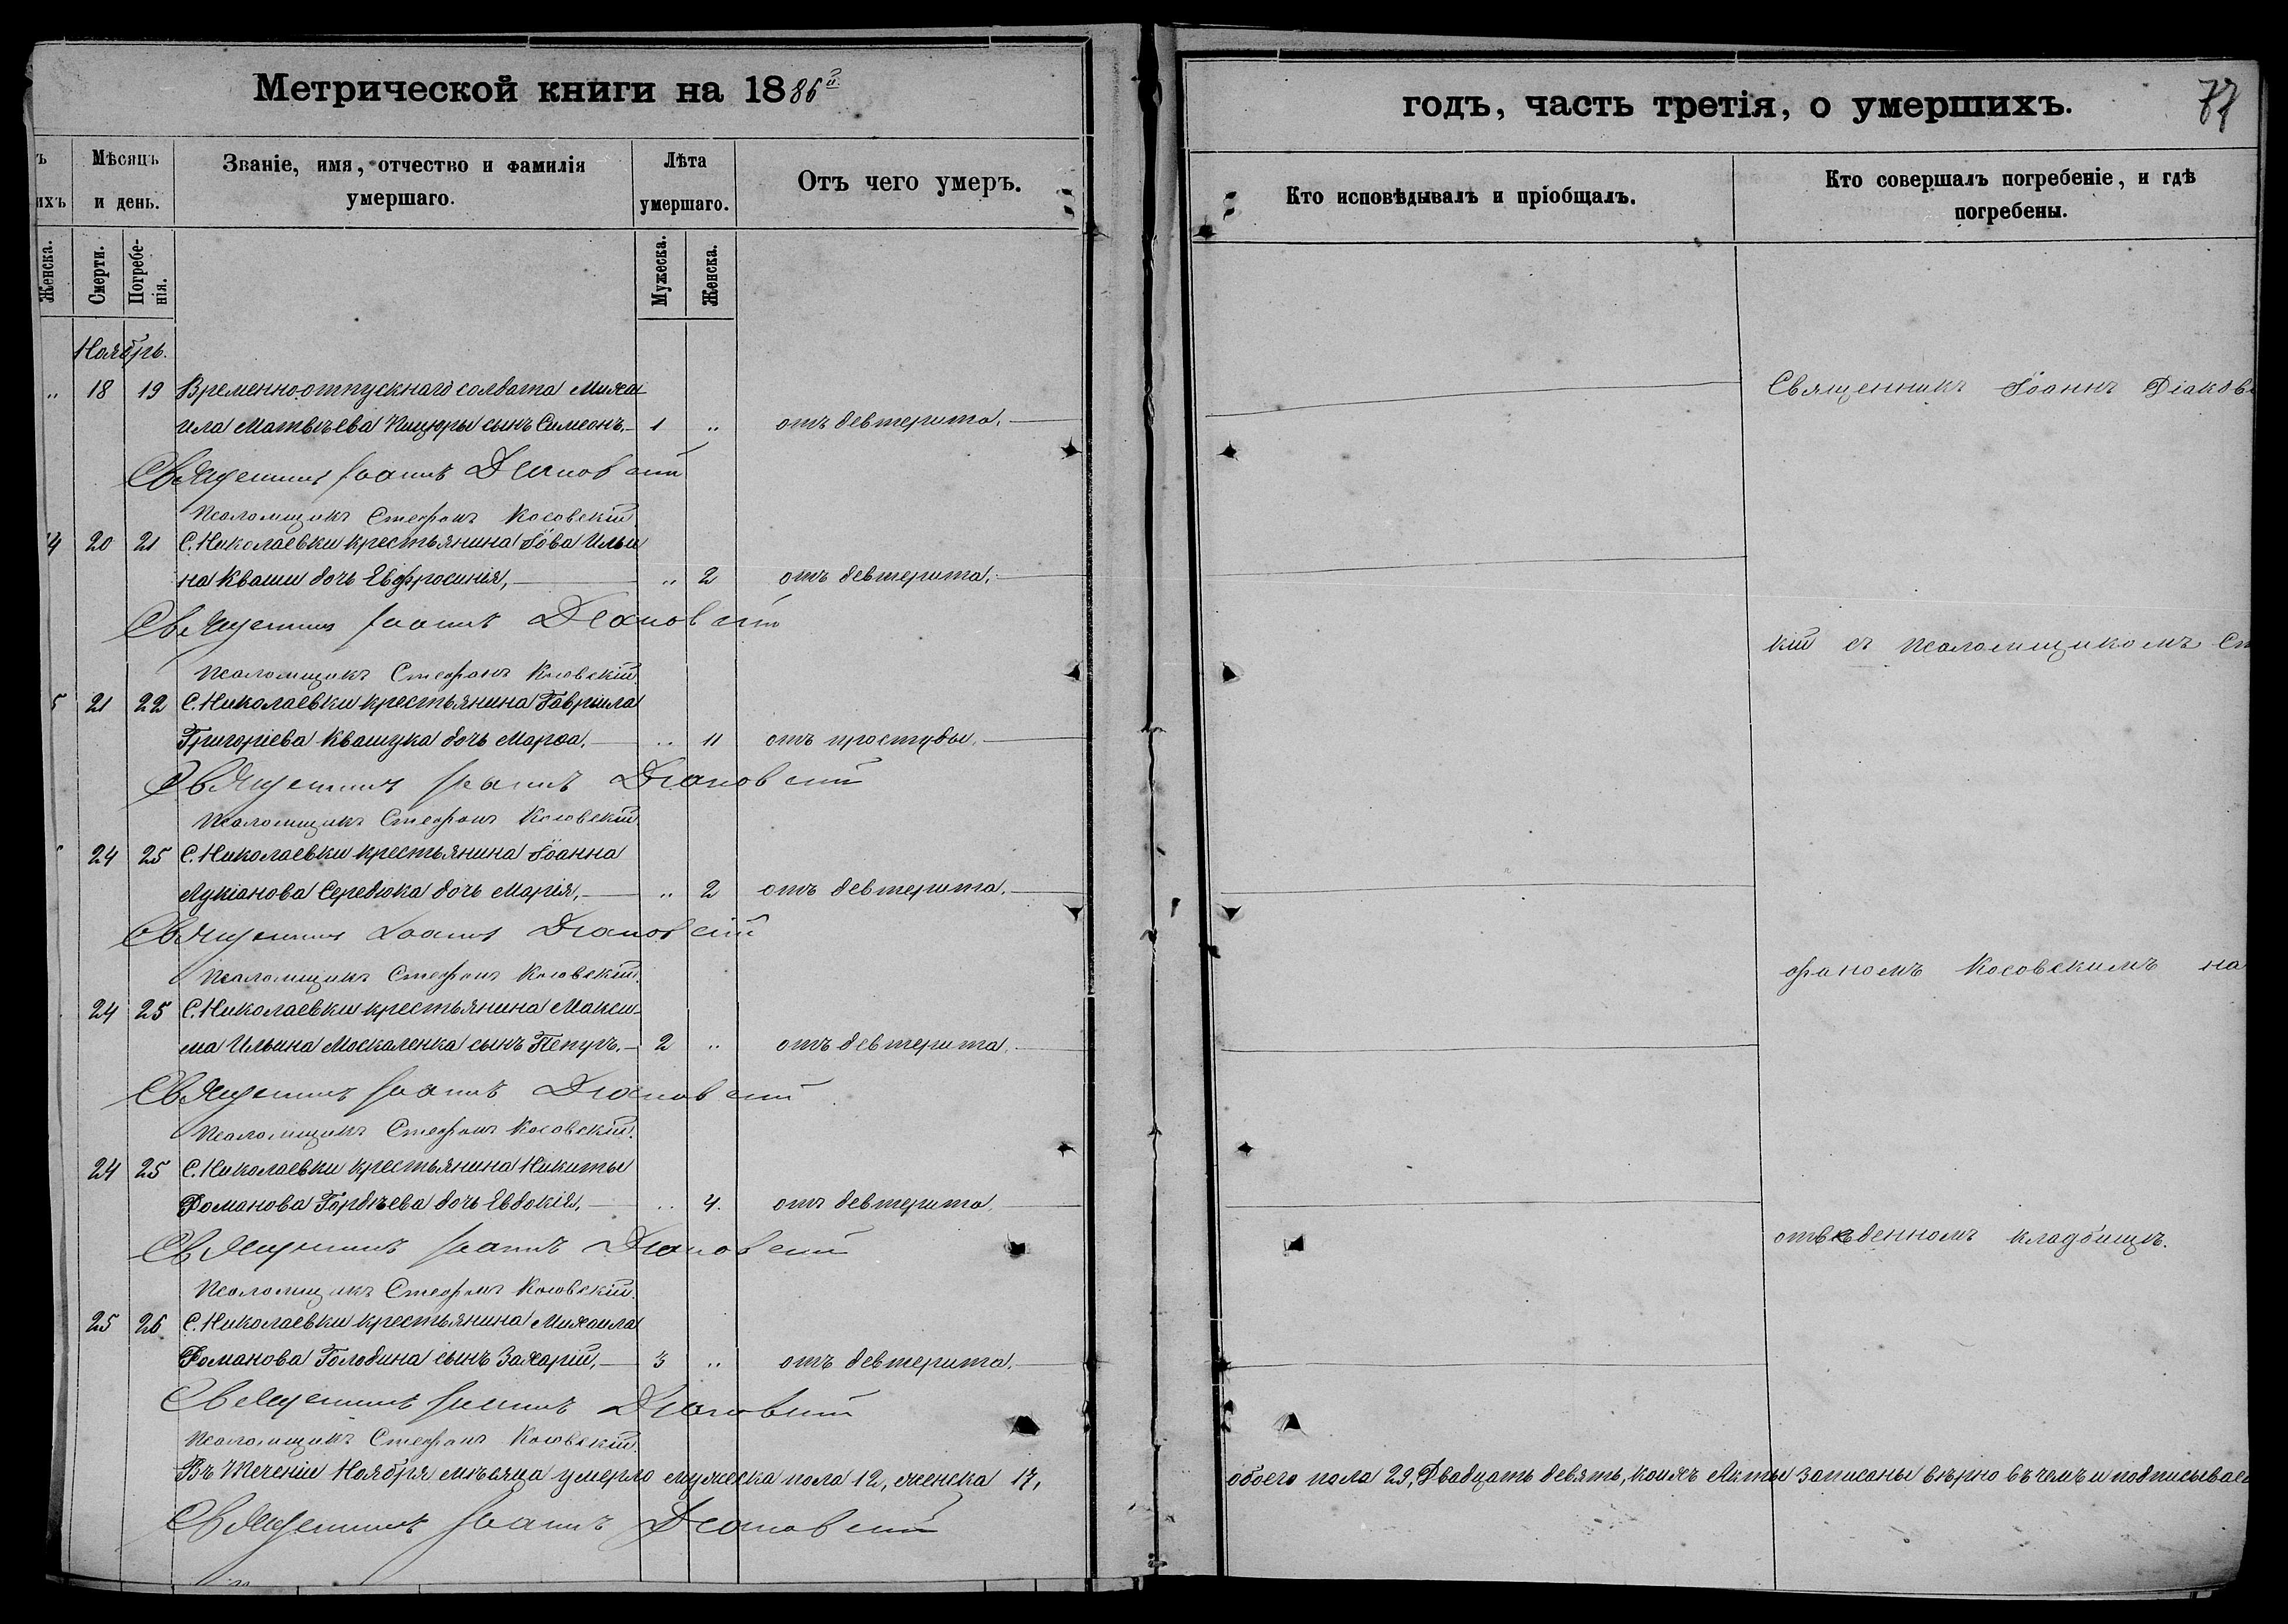 Метрической книги на 1886й
годъ, часть третія, о умершихъ.
77
ъ
ихъ
Мѣсяцъ
и день.
Званіе, имя, отчество и фамилія
умершаго.
Лѣта
умершаго.
Отъ чего умеръ.
Кто исповѣдывалъ и пріобщалъ.
Кто совершалъ погребеніе, и гдѣ
погребены.
Женска.
Смерти.
Погребе-
нія.
Мужеска.
Женска.
Ноябрь.
„ 18 19 Временно-отпускнаго солдата Миха-
ила Матвѣева Кицюры сынъ Симеонъ, 1 „ отъ девтерита,
Священникъ Іоаннъ Діаковскій
Псаломщикъ Стефанъ Косовскій.
14 20 21 С. Николаевки крестьянина Іова Ильи-
на Кваши дочь Евфросинія, „ 2 отъ девтерита,
Священникъ Іоаннъ Діаковскій
Псаломщикъ Стефанъ Косовскій.
5 21 22 С. Николаевки крестьянина Гавріила
Григоріева Квашука дочь Марѳа, „ 11 отъ простуды,
Священникъ Іоаннъ Діаковскій
Псаломщикъ Стефанъ Косовскій.
24 25 С. Николаевки крестьянина Іоанна
Лукіанова Середюка дочь Марія, „ 2 отъ девтерита,
Священникъ Іоаннъ Діаковскій
Псаломщикъ Стефанъ Косовскій.
24 25 С. Николаевки крестьянина Макси-
ма Ильина Москаленка сынъ Петръ, 2 „ отъ девтерита,
Священникъ Іоаннъ Діаковскій
Псаломщикъ Стефанъ Косовскій.
24 25 С. Николаевки крестьянина Никиты
Романова Гордѣева дочь Евдокія, „ 4. отъ девтерита,
Священникъ Іоаннъ Діаковскій
Псаломщикъ Стефанъ Косовскій.
25 26 С. Николаевки крестьянина Михаила
Романова Голодина сынъ Захарій, 3 „ отъ девтерита,
Священникъ Іоаннъ Діаковскій
Псаломщикъ Стефанъ Косовскій.
Въ теченіи Ноября мѣсяца умерло мужеска пола 12, женска 17,
обоего пола 29, Двадцать девять, коихъ Акты записаны вѣрно въ чемъ и подписываем
Священникъ Іоаннъ Діаковскій
Священникъ Іоаннъ Діаковс
кій съ Псаломщикомъ Ст
фаномъ Косовскимъ на
отведенномъ кладбищѣ.